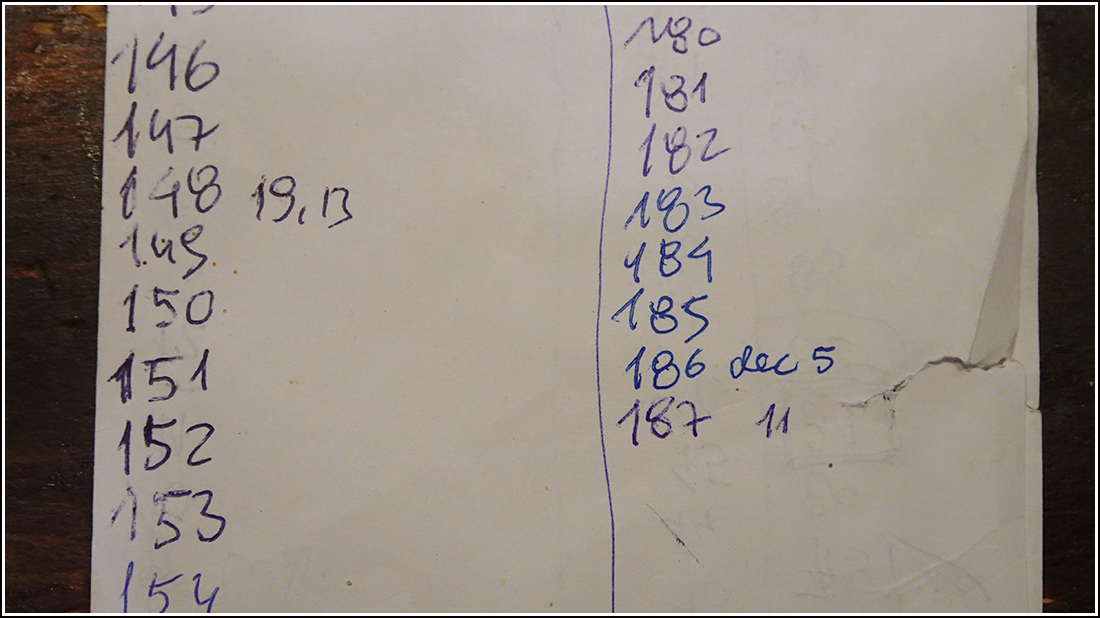 146
147
148 19, 13
149
150
151
152
153
154
180
181
182
183
184
185
186 dec 5
187 11